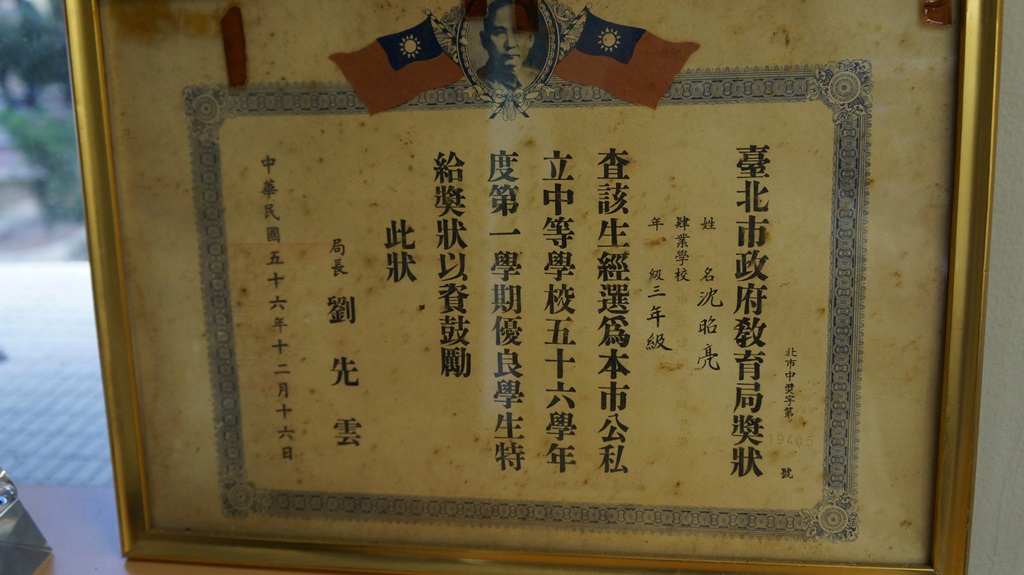 臺北市政府教育局獎狀
北市中獎字第 號
姓 名 沈昭亮
肄業學校
年 級 三年級
查該生經選爲本市公私
立中等學校五十六學年
度第一學期優良學生特
給獎狀以資鼓勵
此狀
局長 劉先雲
中華民國五十六年十二月十六日